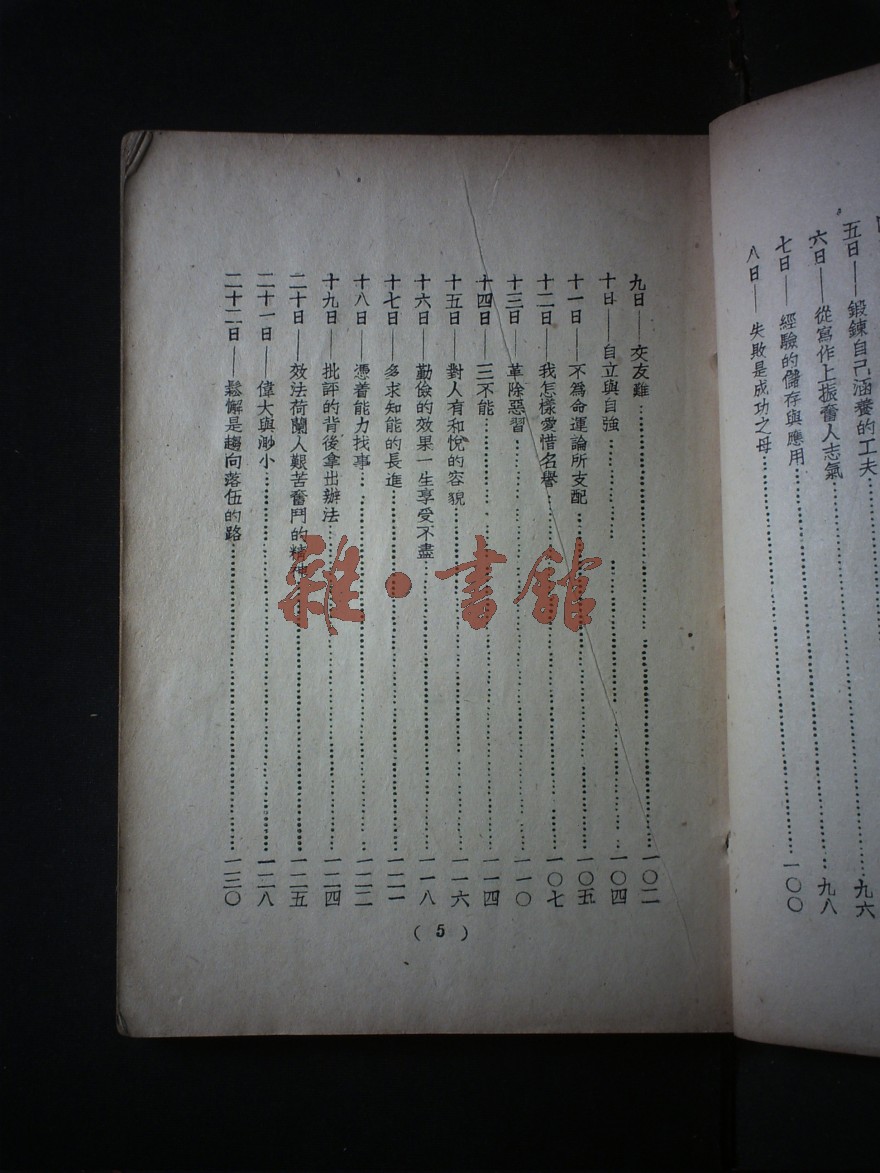 五日——鍛鍊自己涵養的工夫……九六
六日——從寫作上振奮人志氣……九八
七日——經驗的儲存與應用……一〇〇
八日——失敗是成功之母……
九日——交友難……一〇二
十日——自立與自強……一〇四
十一日——不為命運論所支配……一〇五
十二日——我怎樣愛惜名譽……一〇七
十三日——革除惡習……一一〇
十四日——三不能……一一四
十五日——對人有和悅的容貌……一一六
十六日——勤儉的效果一生享受不盡……一一八
十七日——多求知能的長進……一二一
十八日——憑着能力找事……一二三
十九日——批評的背後拿出辦法……一二四
二十日——效法荷蘭人艱苦奮鬥的精神……一二五
二十一日——偉大與渺小……一二八
二十二日——鬆懈是趨向落伍的路……一三〇
( 5 )
雜·書館